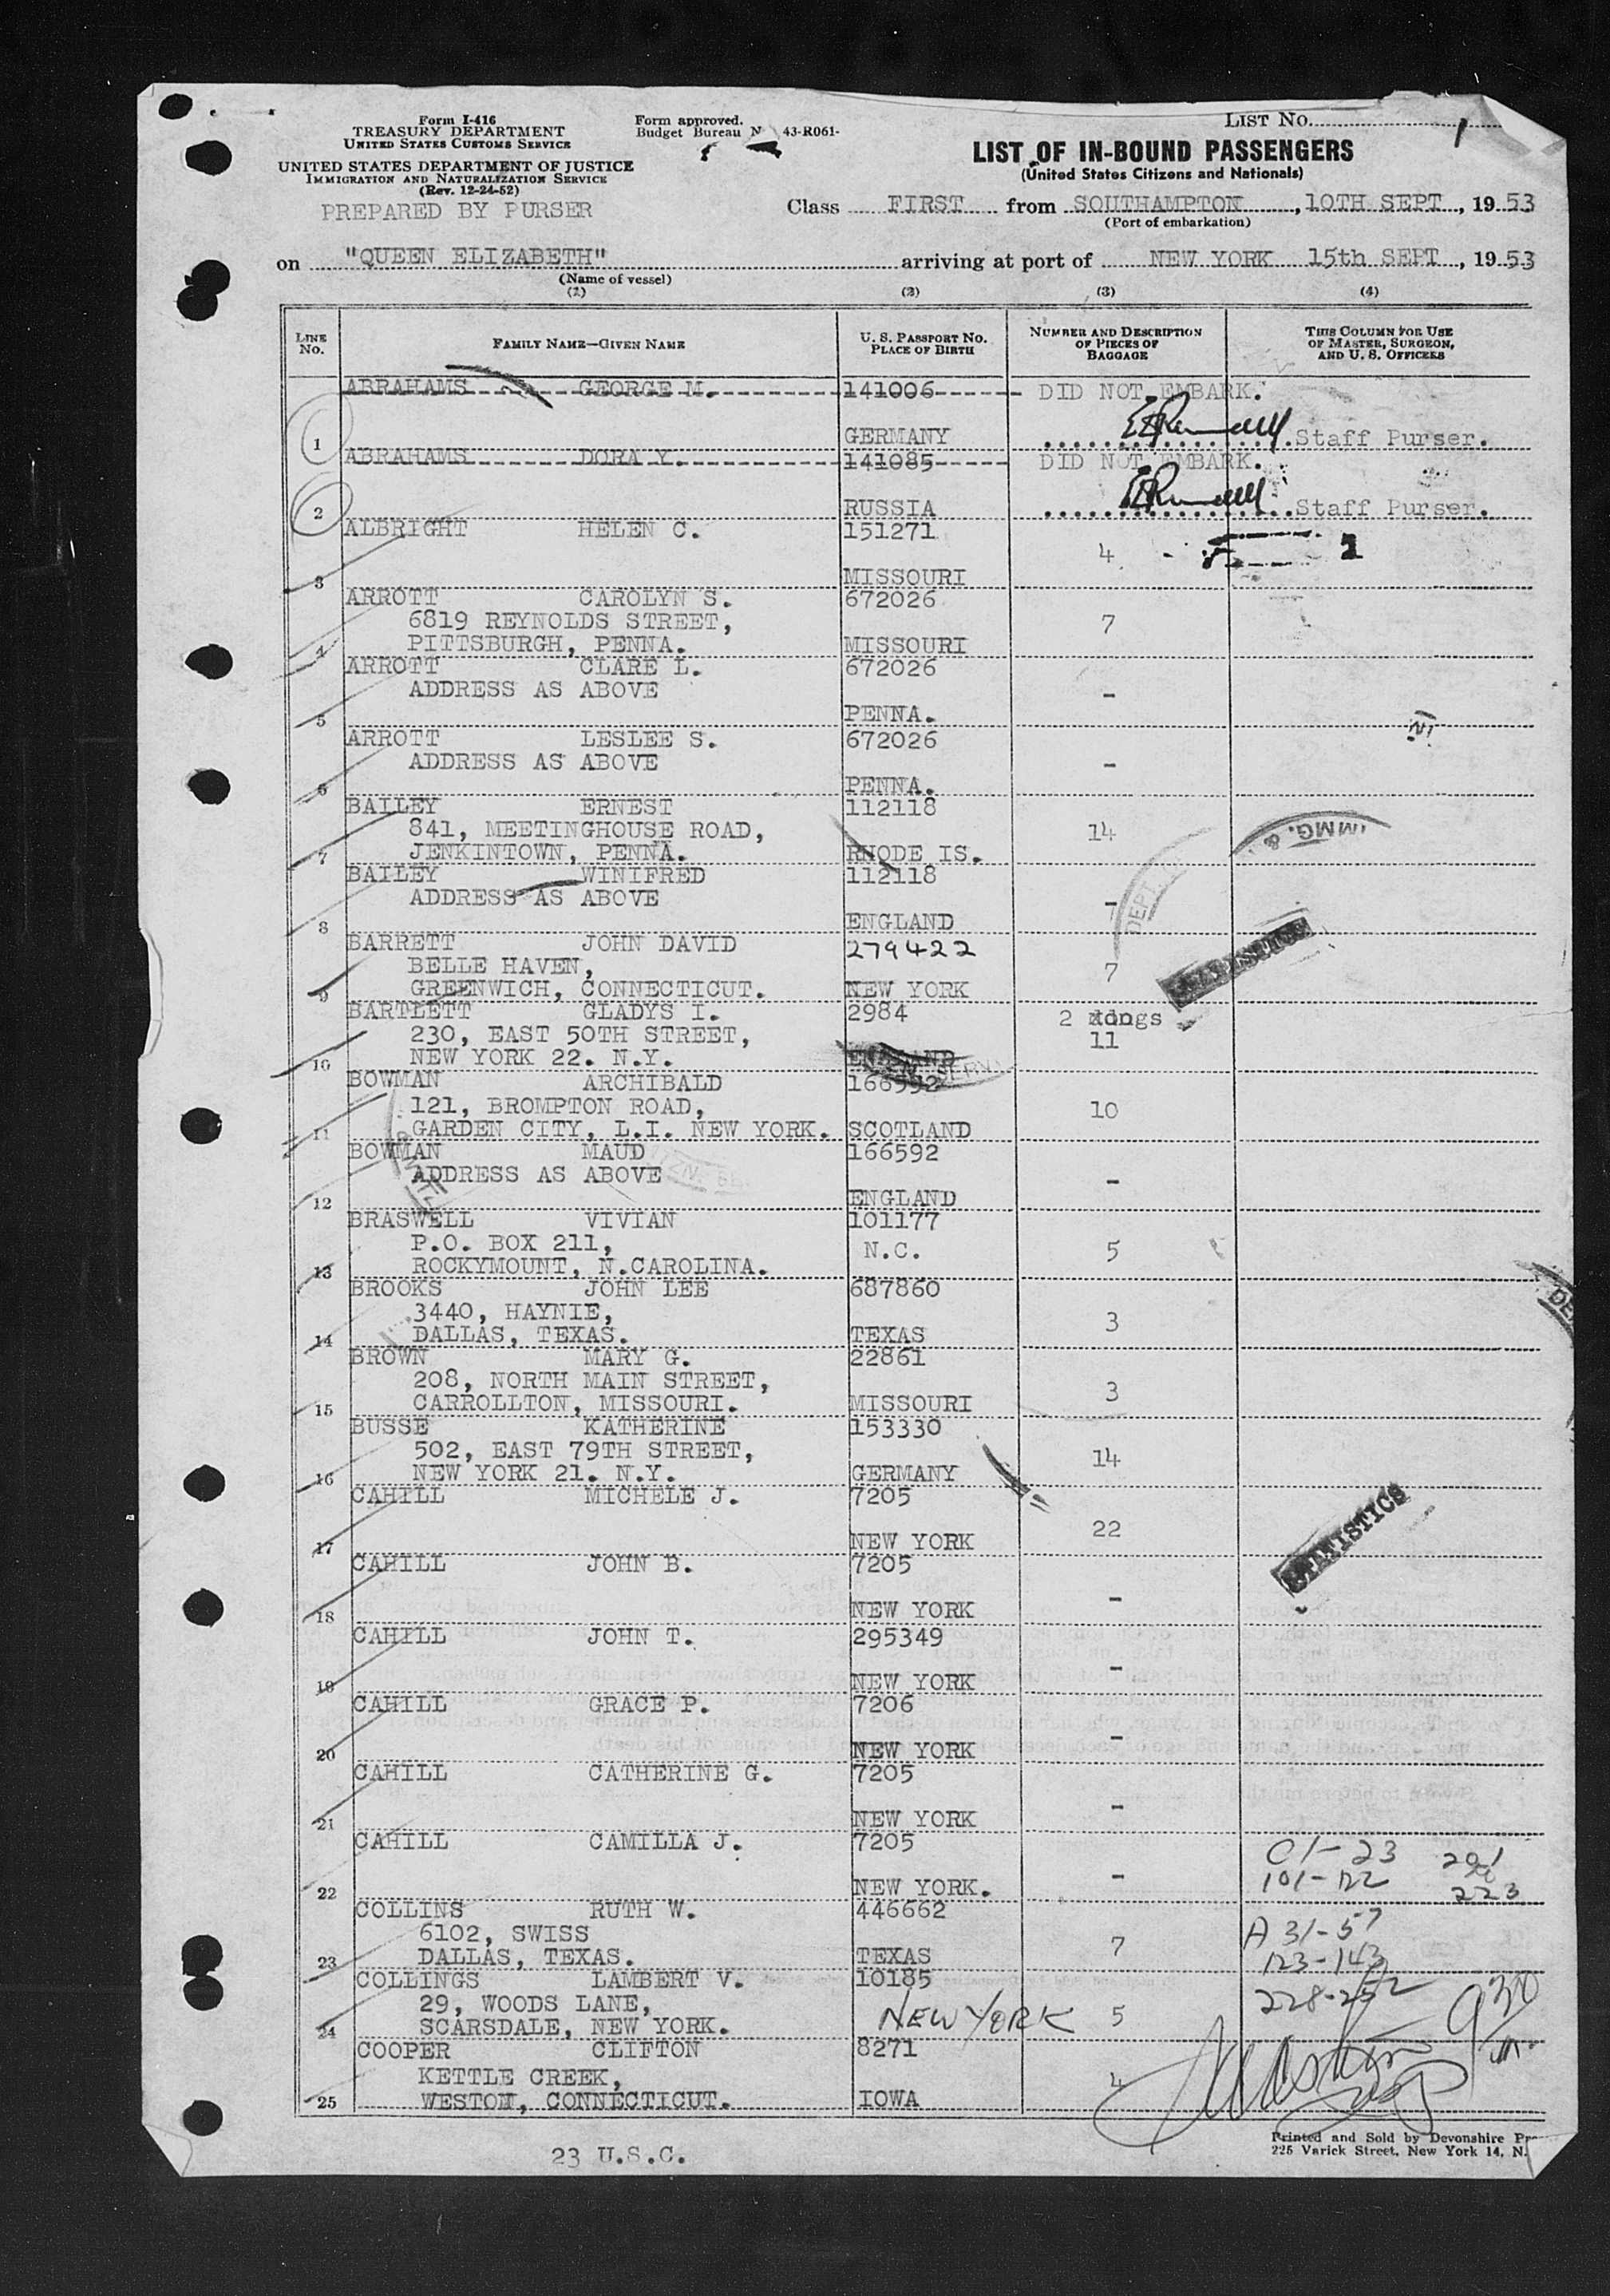 Form I-416
TREASURY DEPARTMENT
UNITED STATES CUSTOMS SERVICE
UNITED STATES DEPARTMENT OF JUSTICE
IMMIGRATION AND NATURALIZATION SERVICE
(Rev. 12-24-52)
PREPARED BY PURSER
Form approved.
Budget Bureau N 43-R061-
LIST NO. 1
LIST OF IN-BOUND PASSENGERS
(United States Citizens and Nationals)
Class FIRST from SOUTHAMPTON, 10TH SEPT, 1953
(Port of embarkation)
on "QUEEN ELIZABETH" arriving at port of NEW YORK 15th SEPT, 1953
(Name of vessel)
(1) (2) (3) (4)
LINE NO. FAMILY NAME—GIVEN NAME U. S. PASSPORT NO. PLACE OF BIRTH NUMBER AND DESCRIPTION OF PIECES OF BAGGAGE THIS COLUMN FOR USE OF MASTER, SURGEON, AND U. S. OFFICERS
ABRAHAMS GEORGE M. 141006 DID NOT EMBARK.
1 GERMANY Staff Purser.
ABRAHAMS DORA Y. 141085 DID NOT EMBARK.
2 RUSSIA Staff Purser.
ALBRIGHT HELEN C. 151271
4 1
3 MISSOURI
ARROTT CAROLYN S. 672026
6819 REYNOLDS STREET, 7
4 PITTSBURGH, PENNA. MISSOURI
ARROTT CLARE L. 672026
ADDRESS AS ABOVE -
5 PENNA.
ARROTT LESLEE S. 672026
ADDRESS AS ABOVE -
6 PENNA.
BAILEY ERNEST 112118
841, MEETINGHOUSE ROAD, 14
7 JENKINTOWN, PENNA. RHODE IS.
BAILEY WINIFRED 112118
ADDRESS AS ABOVE -
8 ENGLAND
BARRETT JOHN DAVID 279422
BELLE HAVEN, 7
9 GREENWICH, CONNECTICUT. NEW YORK
BARTLETT GLADYS I. 2984 2 dogs
230, EAST 50TH STREET, 11
10 NEW YORK 22. N.Y. ENGLAND
BOWMAN ARCHIBALD 166592
121, BROMPTON ROAD, 10
11 GARDEN CITY, L.I. NEW YORK. SCOTLAND
BOWMAN MAUD 166592
ADDRESS AS ABOVE -
12 ENGLAND
BRASWELL VIVIAN 101177
P.O. BOX 211, N.C. 5
13 ROCKYMOUNT, N.CAROLINA.
BROOKS JOHN LEE 687860
3440, HAYNIE, 3
14 DALLAS, TEXAS. TEXAS
BROWN MARY G. 22861
208, NORTH MAIN STREET, 3
15 CARROLLTON, MISSOURI. MISSOURI
BUSSE KATHERINE 153330
502, EAST 79TH STREET, 14
16 NEW YORK 21. N.Y. GERMANY
CAHILL MICHELE J. 7205
22
17 NEW YORK
STATISTICS
CAHILL JOHN B. 7205
-
18 NEW YORK
CAHILL JOHN T. 295349
-
19 NEW YORK
CAHILL GRACE P. 7206
-
20 NEW YORK
CAHILL CATHERINE G. 7205
-
21 NEW YORK
CAHILL CAMILLA J. 7205 01-23 201
- 101-122 223
22 NEW YORK.
COLLINS RUTH W. 446662
6102, SWISS 7 A 31-57
23 DALLAS, TEXAS. TEXAS 123-143
COLLINGS LAMBERT V. 10185
29, WOODS LANE, NEW YORK 5
24 SCARSDALE, NEW YORK.
COOPER CLIFTON 8271
KETTLE CREEK, 4
25 WESTON, CONNECTICUT. IOWA
23 U.S.C.
Printed and Sold by Devonshire
225 Varick Street, New York 14, N.